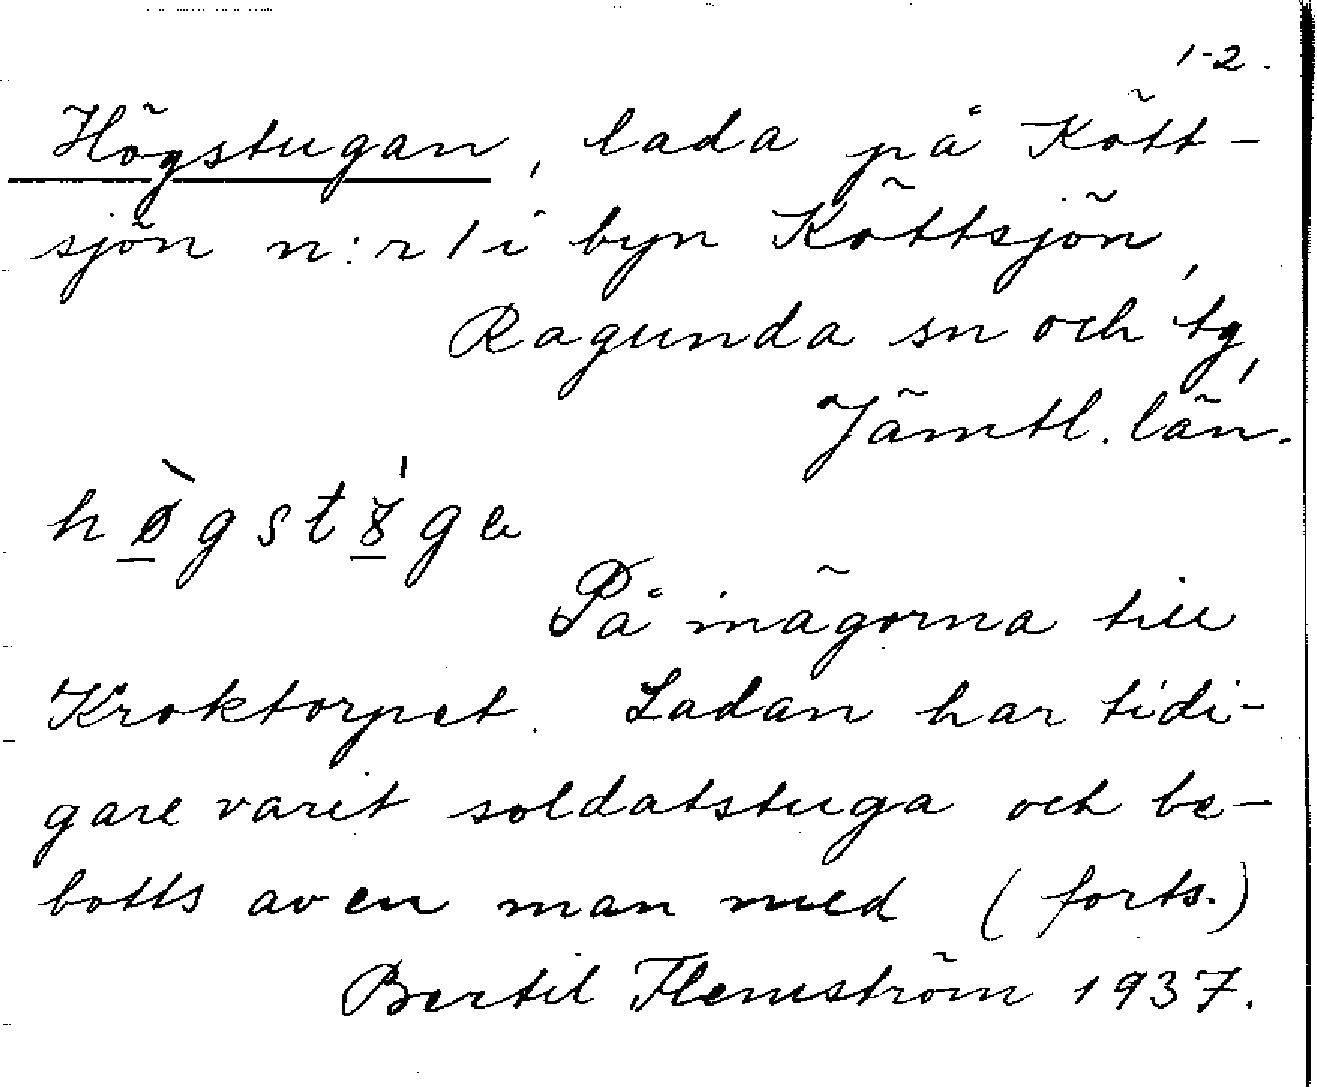 1-2.
Högstugan, lada på Kött-
sjön n:r 1 i byn Köttsjön,
Ragunda sn och tg,
Jämtl. län.
På inägorna till
Kroktorpet. Ladan har tidi-
gare varit soldatstuga och be-
botts av en man med (forts.)
Bertil Flemström 1937.